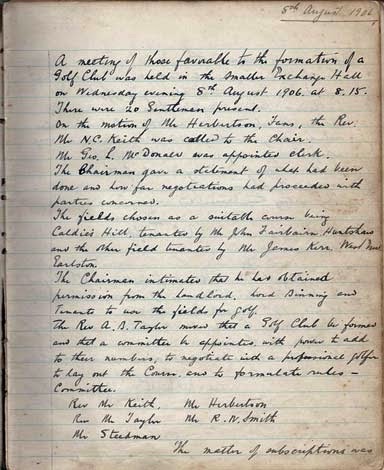 8th August, 1906
A meeting of those favorable to the formation of a
Golf Club was held in the Smaller Exchange Hall
on Wednesday evening 8th August 1906. at 8.15.
There were 20 Gentlemen present.
On the motion of Mr Herbertson, Fans, the Rev.
Mr N.C. Keith was called to the Chair.
Mr Geo. L. McDonald was appointed clerk.
The Chairman gave a statement of what had been
done and how far negotiations had proceeded with
parties concerned.
The fields chosen as a suitable course being
Caldies Hill, tenanted by Mr John Fairbairn
and the other field tenanted by Mr James Kerr, West
Earlston.
The Chairman intimated that he had obtained
permission from the Landlord, Lord Binning and
Tenants to use the fields for golf.
The Rev A.B. Taylor moved that a Golf Club be formed
and that a committee be appointed with power to add
to their numbers, to negotiate with a professional golfer
to lay out the Course and to formulate rules -
Committee.
Rev Mr Keith, Mr Herbertson
Rev Mr Taylor Mr R.N. Smith
Mr Steedman
The matter of subscriptions was